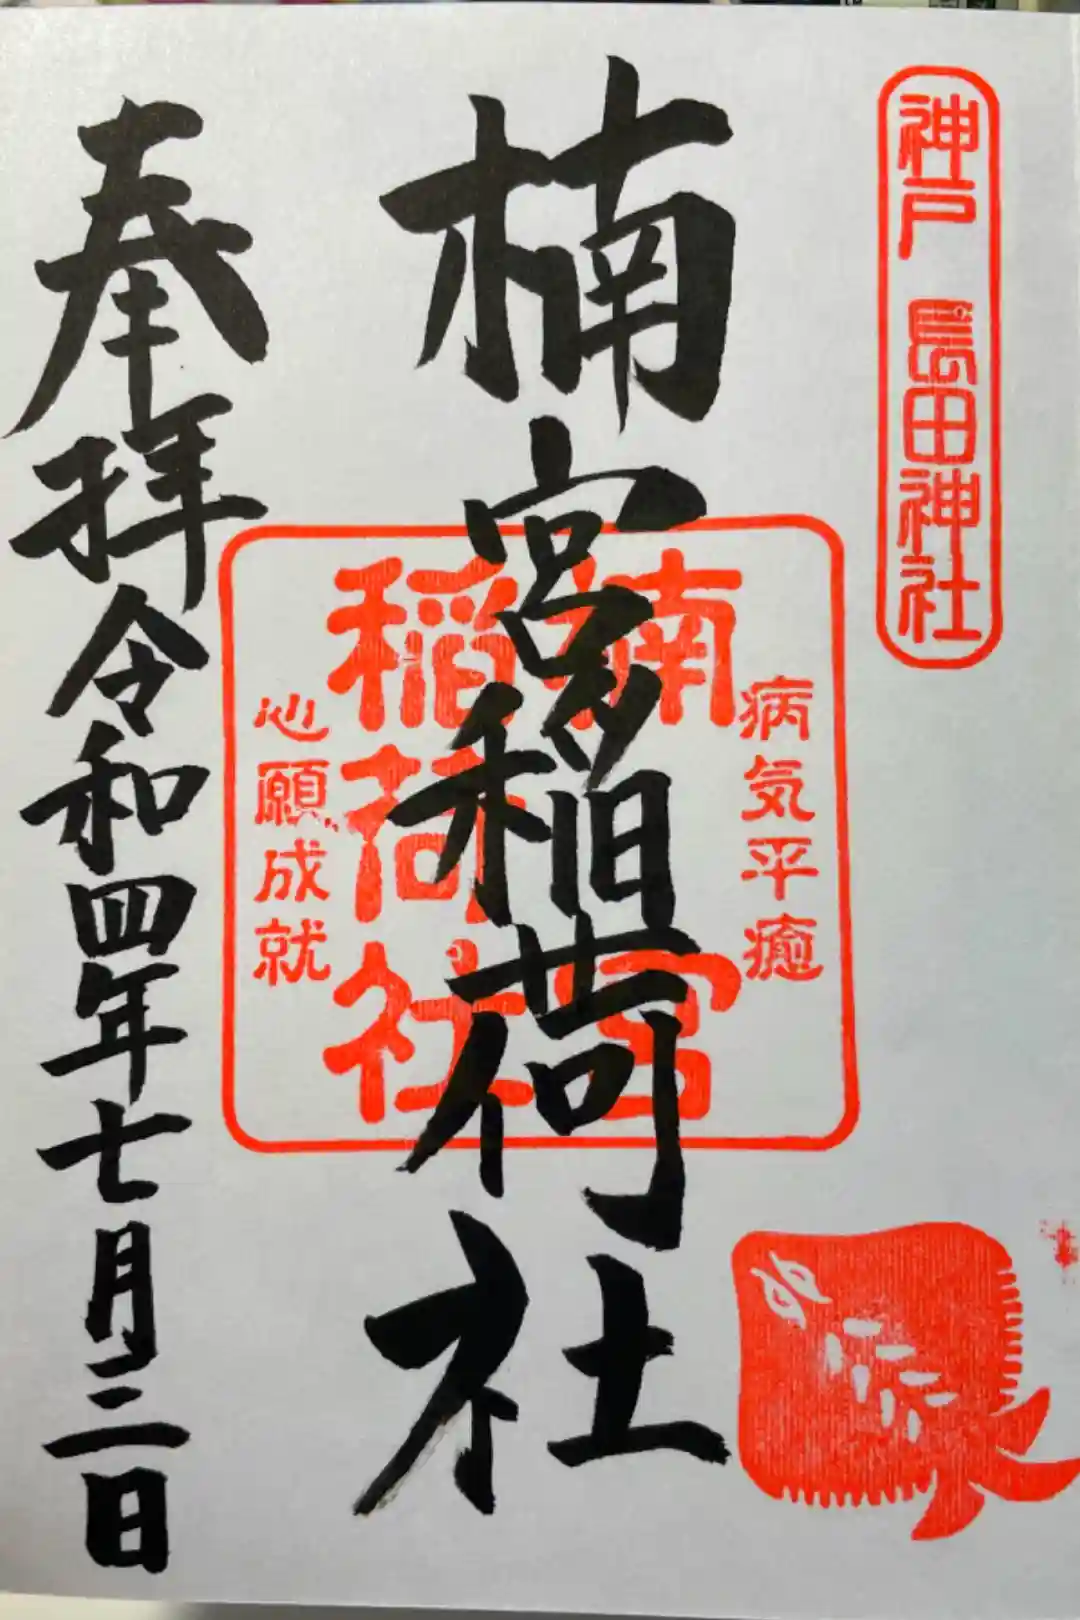 神戸 長田神社
楠宮稲荷社
病気平癒
楠宮
稲荷社
心願成就
奉拝 令和四年七月三日